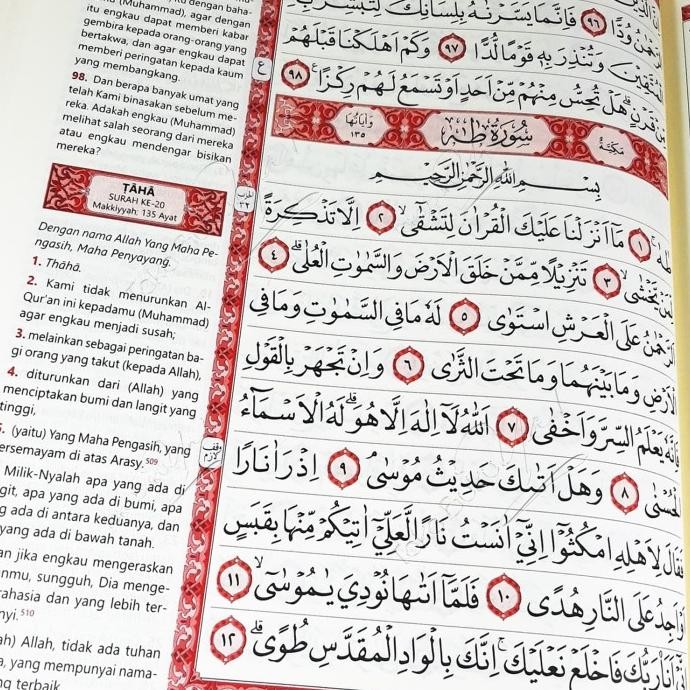 (Muhammad), agar dengan
itu engkau dapat memberi kabar
gembira kepada orang-orang yang
bertakwa, dan agar engkau dapat
memberi peringatan kepada kaum
yang membangkang.
98. Dan berapa banyak umat yang
telah Kami binasakan sebelum me-
reka. Adakah engkau (Muhammad)
melihat salah seorang dari mereka
atau engkau mendengar bisikan
mereka?
ṬĀHĀ
SURAH KE-20
Makkiyyah: 135 Ayat
Dengan nama Allah Yang Maha Pe-
ngasih, Maha Penyayang.
1. Ṭhāhā.
2. Kami tidak menurunkan Al-
Qur'an ini kepadamu (Muhammad)
agar engkau menjadi susah;
3. melainkan sebagai peringatan ba-
gi orang yang takut (kepada Allah),
4. diturunkan dari (Allah) yang
menciptakan bumi dan langit yang
tinggi,
(yaitu) Yang Maha Pengasih, yang
bersemayam di atas Arasy.509
Milik-Nyalah apa yang ada di
apa yang ada di bumi, apa
ada di antara keduanya, dan
yang ada di bawah tanah.
jika engkau mengeraskan
sungguh, Dia menge-
rahasia dan yang lebih ter-
510
Allah, tidak ada tuhan
yang mempunyai nama-
terbaik
وُدًّا ٩٦ فَاِنَّمَا يَسَّرْنٰهُ بِلِسَانِكَ لِتُبَشِّرَ بِهِ
الْمُتَّقِيْنَ وَتُنْذِرَ بِهٖ قَوْمًا لُّدًّا ٩٧ وَكَمْ اَهْلَكْنَا قَبْلَهُمْ
مِّنْ قَرْنٍۗ هَلْ تُحِسُّ مِنْهُمْ مِّنْ اَحَدٍ اَوْ تَسْمَعُ لَهُمْ رِكْزًا ࣖ ٩٨
مَكِّيَّة سُوْرَةُ طٰهٰ وَاٰيَاتُهَا ١٣٥
بِسْمِ اللّٰهِ الرَّحْمٰنِ الرَّحِيْمِ
الحزب ٣٢
طٰهٰ ۚ ١ مَآ اَنْزَلْنَا عَلَيْكَ الْقُرْاٰنَ لِتَشْقٰٓىۙ ٢ اِلَّا تَذْكِرَةً
لِّمَنْ يَّخْشٰىۙ ٣ تَنْزِيْلًا مِّمَّنْ خَلَقَ الْاَرْضَ وَالسَّمٰوٰتِ الْعُلٰىۗ ٤
اَلرَّحْمٰنُ عَلَى الْعَرْشِ اسْتَوٰى ٥ لَهٗ مَا فِى السَّمٰوٰتِ وَمَا فِى
الْاَرْضِ وَمَا بَيْنَهُمَا وَمَا تَحْتَ الثَّرٰى ٦ وَاِنْ تَجْهَرْ بِالْقَوْلِ
فَاِنَّهٗ يَعْلَمُ السِّرَّ وَاَخْفٰى ٧ اَللّٰهُ لَآ اِلٰهَ اِلَّا هُوَۗ لَهُ الْاَسْمَاۤءُ
وقف لازم
الْحُسْنٰى ٨ وَهَلْ اَتٰىكَ حَدِيْثُ مُوْسٰىۘ ٩ اِذْ رَاٰ نَارًا
فَقَالَ لِاَهْلِهِ امْكُثُوْٓا اِنِّيْٓ اٰنَسْتُ نَارًا لَّعَلِّيْٓ اٰتِيْكُمْ مِّنْهَا بِقَبَسٍ
اَوْ اَجِدُ عَلَى النَّارِ هُدًى ١٠ فَلَمَّآ اَتٰىهَا نُوْدِيَ يٰمُوْسٰٓىۙ ١١
اِنِّيْٓ اَنَا۠ رَبُّكَ فَاخْلَعْ نَعْلَيْكَۚ اِنَّكَ بِالْوَادِ الْمُقَدَّسِ طُوًىۗ ١٢